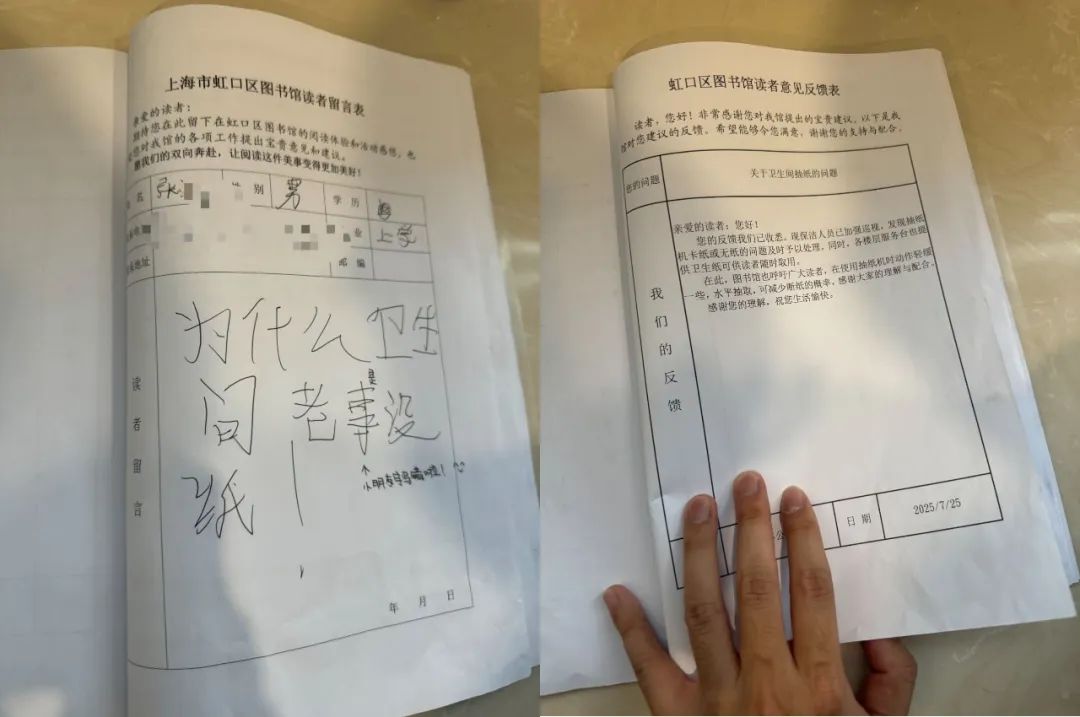 上海市虹口区图书馆读者留言表
亲爱的读者:
期待您在此留下在虹口区图书馆的阅读体验和活动感悟，也
您对我馆的各项工作提出宝贵意见和建议。
我们的双向奔赴，让阅读这件美事变得更加美好！
名 张 性 别 男 学 历
业 上学
地址 邮 编
读者留言
为什么卫生
间老事没
是
纸！
↑
小朋友字写错啦！
年 月 日
虹口区图书馆读者意见反馈表
读者，您好！非常感谢您对我馆提出的宝贵建议。以下是我
馆对您建议的反馈。希望能够令您满意，谢谢您的支持与配合。
您的问题 关于卫生间抽纸的问题
我们的反馈
亲爱的读者：您好！
您的反馈我们已收悉。现保洁人员已加强巡视，发现抽纸
机卡纸或无纸的问题及时予以处理，同时，各楼层服务台也提
供卫生纸可供读者随时取用。
在此，图书馆也呼吁广大读者，在使用抽纸机时动作轻缓
一些，水平抽取，可减少断纸的概率。感谢大家的理解与配合。
感谢您的理解，祝您生活愉快。
日 期 2025/7/25